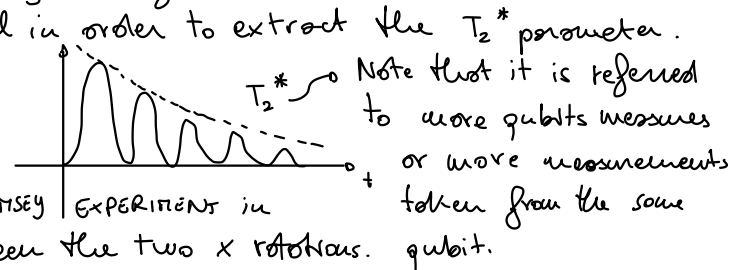 l in order to extract the T₂* parameter.
T₂* Note that it is referred
to more qubits measures
or more measurements
t
taken from the same
MSEY EXPERIMENT in
een the two x rotations. qubit.